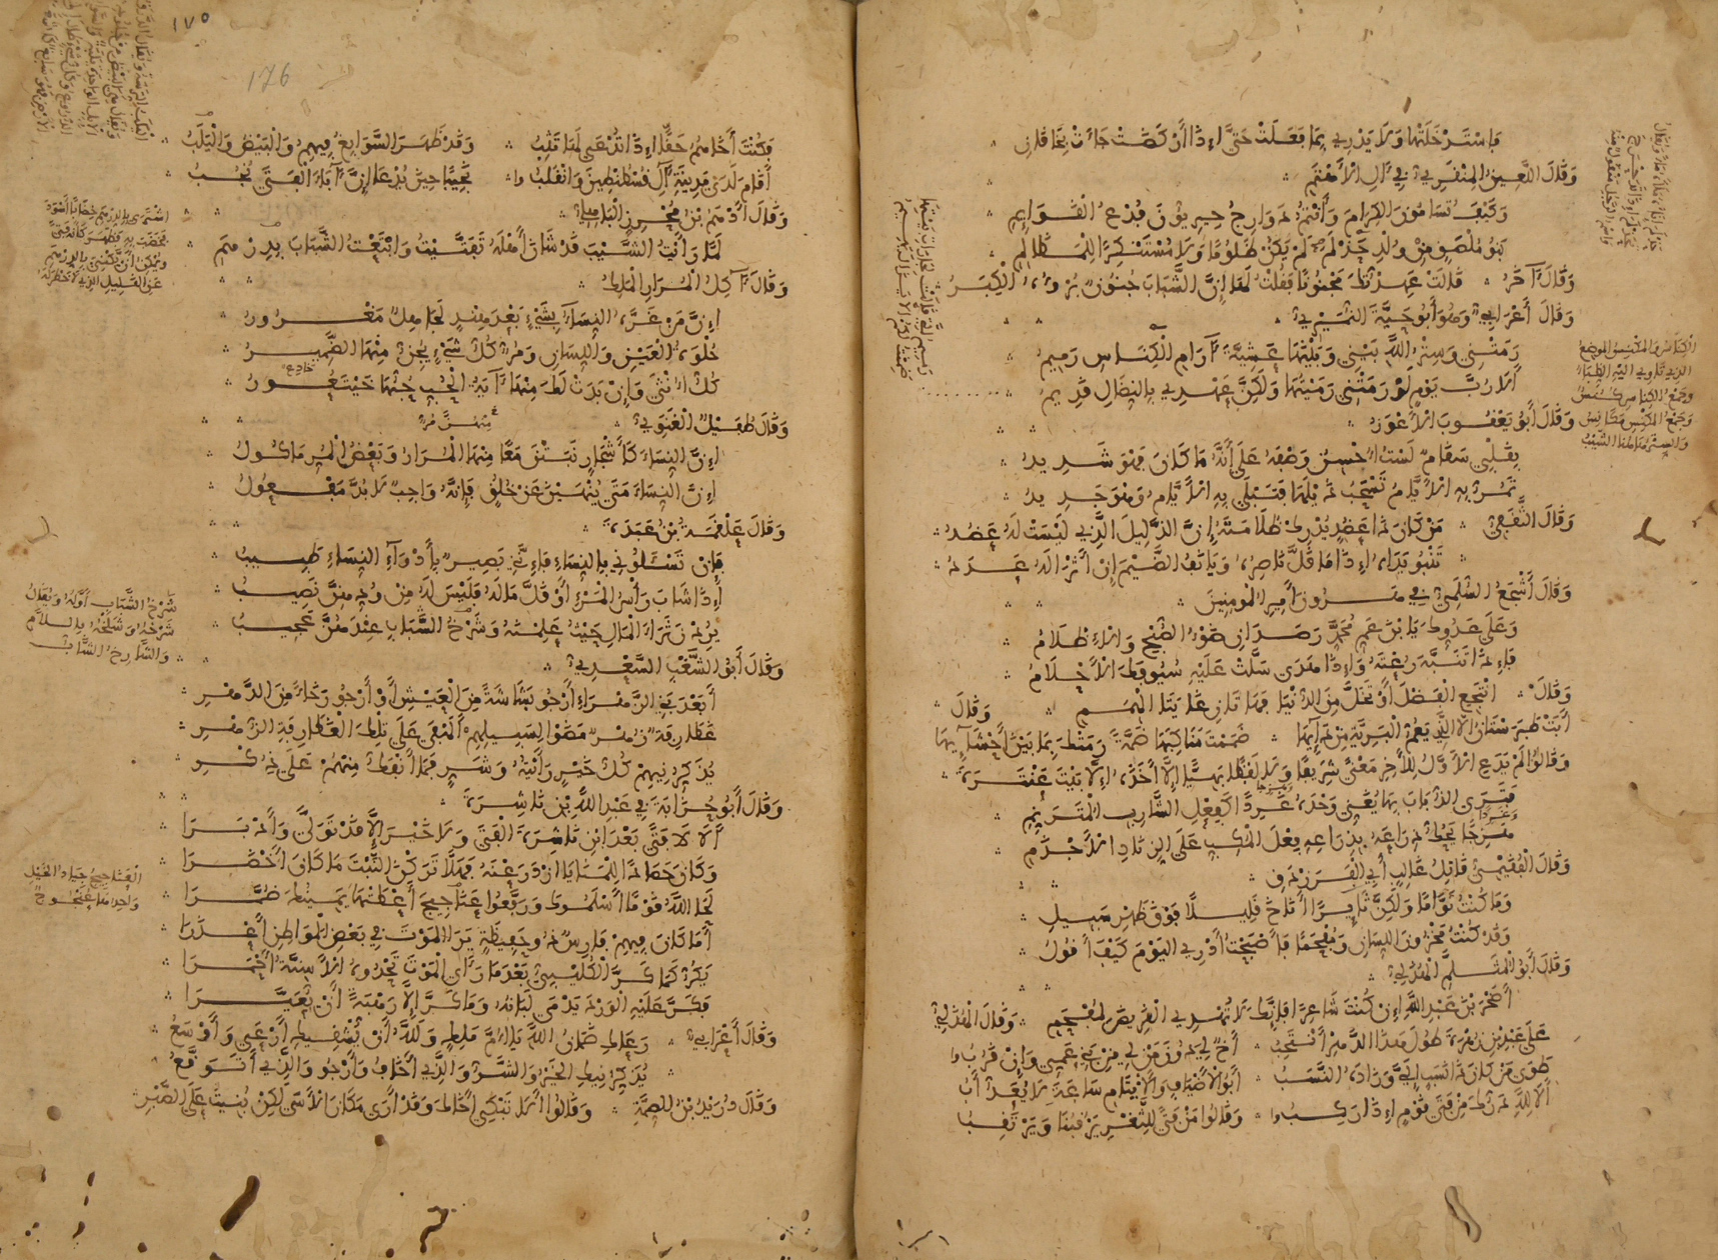 فاستدخلتها ولا يدري بما فعلت حتى إذا
وقال اللعين المنقري في آل الأهتم
وكيف تسامون الكرام وأنتم دوارج حيريون فدع القوائم
بنو ملصق من ولد حذلم لم يكن ظلوما ولا مستنكرا للمظالم
وقال آخر قالت عهدتك مجنونا فقلت لها إن الشباب جنون برؤه الكبر
وقال أعرابي وهو أبو حية النميري
رمتني وستر الله بيني وبينها عشية آرام الكناس رميم
ألا رب يوم لو رمتني رميتها ولكن عهدي بالنضال قديم
وقال أبو يعقوب الأعور
بقلبي سقام لست أحسن وصفه على أنه ما كان فهو شديد
تمر به الأيام تسحب ذيلها فتبلى به الأيام وهو جديد
وقال الثقفي من كان ذا عضد يدرك ظلامته إن الذليل الذي ليست له عضد
تنبو يداه إذا ما قل ناصره ويأنف الضيم إن أثرى له عدد
وقال أشجع السلمي في هرون أمير المؤمنين
وعلى عدوك يا بن عم محمد رصدان ضوء الصبح والإظلام
فإذا تنبه رعته وإذا هدى سلت عليه سيوفك الأحلام
وقال انتجع الفضل أو تخل من الدنيا فهاتان غايتا الهمم وقال
أبت طبرستان إلا الذي يعم البرية من دائها ضممت مناكبها ضمة رمتك بما بين أحشائها
وقالوا لم يدع الأول للآخر معنى شريفا ولا لفظا بهيا إلا أخذه إلا بيت عنترة
فترى الذباب بها يغني وحده غردا كفعل الشارب المترنم
هزجا يحك ذراعه بذراعه فعل المكب على الزناد الأجذم
وقال الفقيمي قاتل غالب أبي الفرزدق
وما كنت نواما ولكن ثائرا أناخ قليلا فوق ظهر سبيل
وقد كنت مخزون اللسان ومفحما فأصبحت أدري اليوم كيف أقول
وقال أبو المثلم الهذلي
أصخر بن عبد الله إن كنت شاعرا فإنك لا تهدي القريض لمفحم وقال الهذلي
على عبد بن زهرة طول هذا الدهر أنتحب أخ لي دون من لي من بني عمي وإن قربوا
طوى من كان ذا نسب إلي وزاده النسب أبو الأضياف والأيتام ساعة لا يعد أب
ألا لله درك من فتى قوم إذا ركبوا وقالوا من فتى للثغر يرقبنا ويرتقب
الكناس والمكنس الموضع
الذي تاوي اليه الظباء
وجمع الكناس كنس
وجمع المكنس مكانس
والستر هاهنا الشيب
١٧٥
176
فكنت أخاهم حقا إذا تدعى لها تثب وقد ظهر السوابغ فيهم والبيض واليلب
أقام لدى مدينة آل قسطنطين وانقلبوا نجيبا حين يدعى إن آباء الفتى نجب
وقال أدهم بن محرز الباهلي
لما رأيت الشيب قد شان أهله تفتيت وابتعت الشباب بدرهم
وقال آكل المرار الملك
إن من غره النساء بشيء بعد هند لجاهل مغرور
حلوة العين واللسان ومر كل شيء يجن منها الضمير
كل أنثى وإن بدت لك منها آية الحب حبها خيتعور
وقال طفيل الغنوي
إن النساء كأشجار نبتن معا منها المرار وبعض المر مأكول
إن النساء متى ينهين عن خلق فإنه واجب لا بد مفعول
وقال علقمة بن عبدة
فإن تسئلوني بالنساء فإنني بصير بأدواء النساء طبيب
إذا شاب رأس المرء أو قل ماله فليس له من ودهن نصيب
يردن ثراء المال حيث علمنه وشرخ الشباب عندهن عجيب
وقال أبو الشغب السعدي
أبعد بني الزهراء أرجو بشاشة من العيش أو أرجو رخاء من الدهر
غطارفة زهر مضوا لسبيلهم ألهفي على تلك الغطارفة الزهر
يذكرنيهم كل خير رأيته وشر فما أنفك منهم على ذكر
وقال أبو حزابة في عبد الله بن ناشرة
ألا لا فتى بعد ابن ناشرة الفتى ولا خير إلا قد تولى وأدبرا
وكان حصادا للمنايا ازدرعنه فهلا تركن النبت ما كان أخضرا
لحا الله قوما أسلموك ورفعوا عناجيج أعطتها يمينك ضمرا
أما كان فيهم فارس ذو حفيظة يرى الموت في بعض المواطن أعذرا
يكر كما كر الكليبي بعد ما رأى الموت تحدوه الأسنة أحمرا
فكر عليه الورد يدمى لبانه وما كر إلا رهبة أن يعيرا
وقال أعرابي رعاك ضمان الله يا أم مالك ولله أن يشقيك أغنى وأوسع
يذكرنيك الخير والشر والذي أخاف وأرجو والذي أتوقع
وقال دريد بن الصمة وقالوا ألا تبكي أخاك وقد أرى مكان الأسى لكن بنيت على الصبر
شرخ الشباب أوله ويقال
شرخه وشلخه باللام
والشارخ الشاب
العناجيج جياد الخيل
واحدها عنجوج